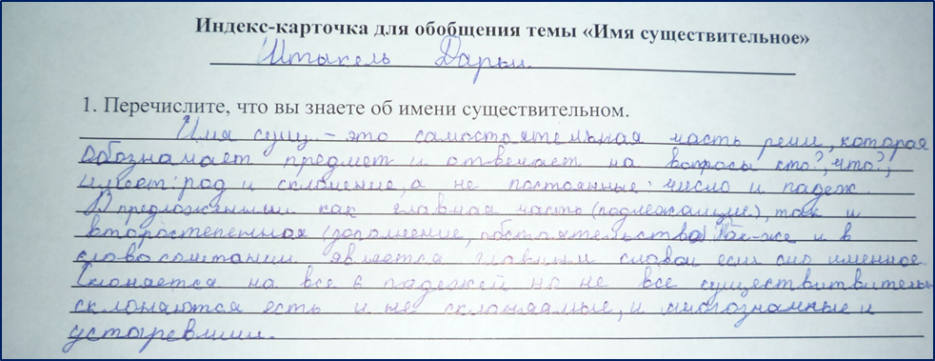 Индекс-карточка для обобщения темы «Имя существительное»
Штыкель Дарьи
1. Перечислите, что вы знаете об имени существительном.
Имя сущ. – это самостоятельная часть речи, которая
обозначает предмет и отвечает на вопросы кто?, что?,
имеет: род и склонение, а не постоянные: число и падеж.
В предложении как главная часть (подлежащие), так и
второстепенная (дополнение, обстоятельство) же и в
словосочетании является главным словом если оно именное.
Склоняется на все 6 падежей но не все существительн
склоняются есть и не склоняемые, и многозначные и
устаревшии.